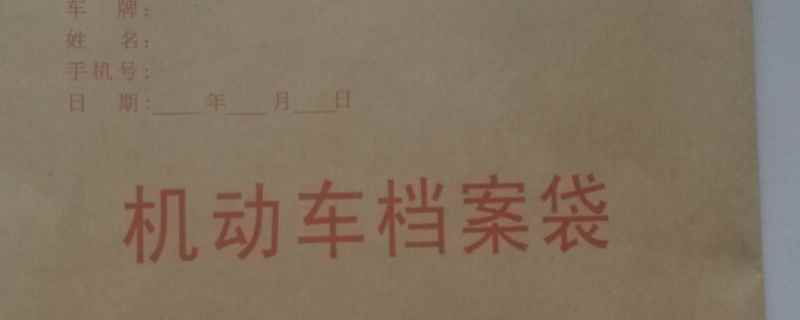 车 牌:
姓 名:
手机号:
日 期:____年____月____日
机动车档案袋